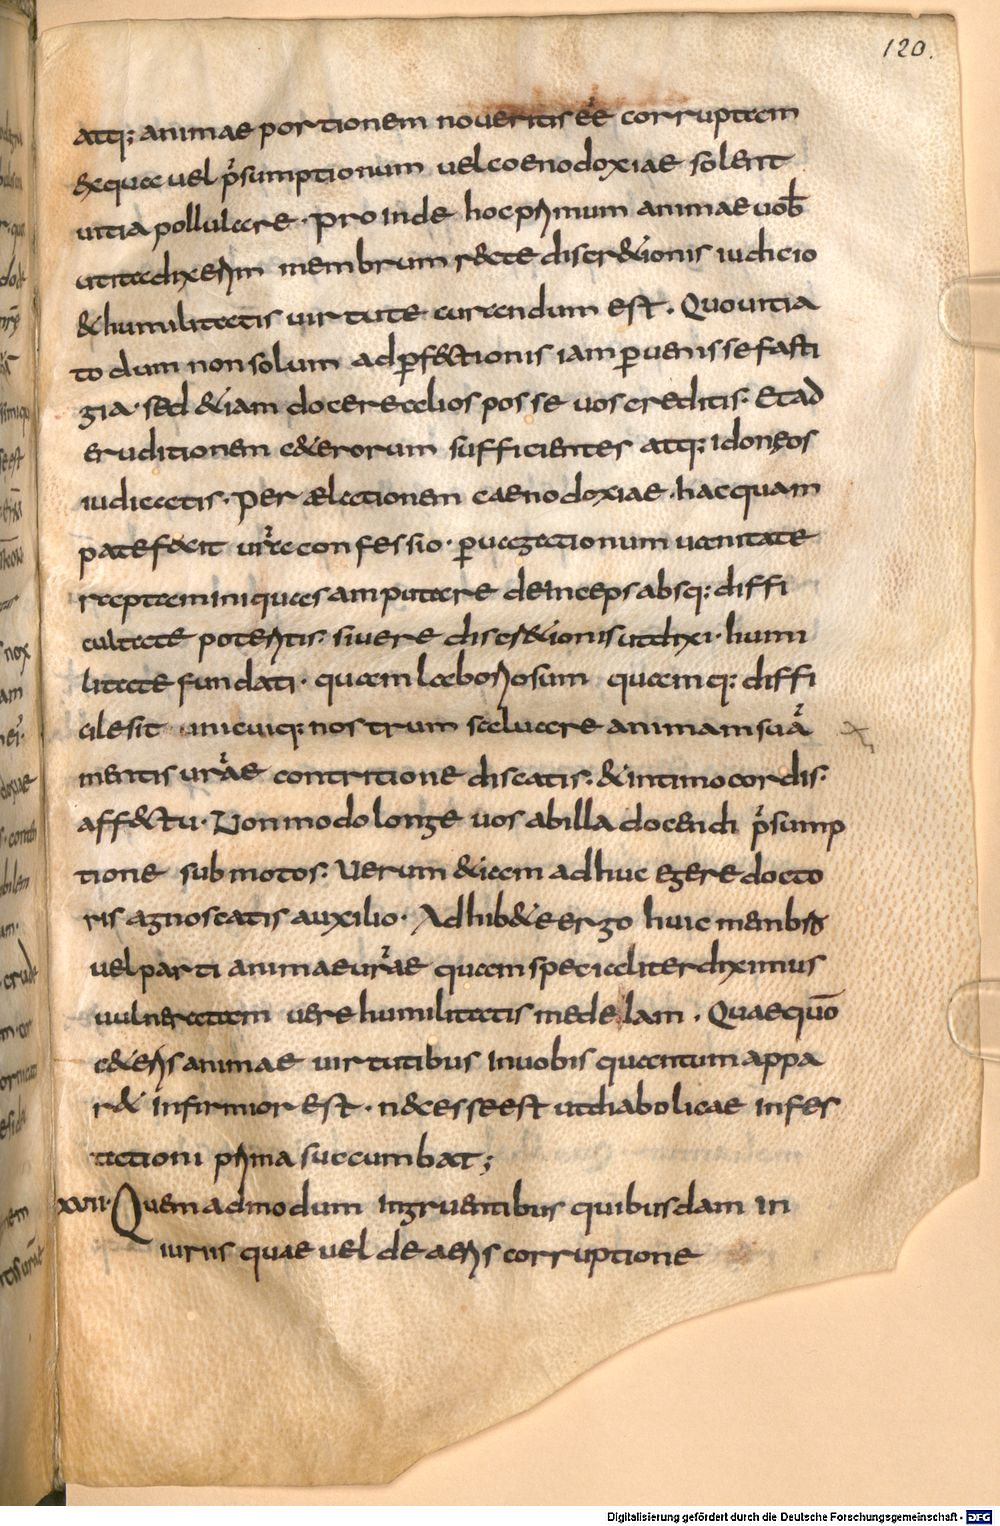 120.
atq; animae portionem noveritis eē corruptam
Exqua vel p̄sumptionum vel coenodoxiae solent
vitia pollulare · proinde hoc primum animae vob̄
utita dixerim membrum r&cte discr&ionis iudicio
& humilitatis virtute curandum est . Quo vitia
to dum non solum ad perf&ctionis iam pervenisse fasti
gia · sed &iam docere alios posse vos creditis. Et ad
eruditionem c&erorum sufficientes atq; idoneos
iudicatis. Per ælectionem caenodoxiae · hac quam
patefecit ur̄ra confessio · per vagationum vanitate
raptam iniquaes amputare deinceps absq; diffi
cultate poteritis. si vere discr&ionis ut dixi · humi
litate fundati · quam laboriosum quamq; diffi
cile sit unicuiq; nostrum salvare animam suā
mentis urāe contritione discatis. & intimo cordis.
aff&ctu · Non modo longe vos ab illa docendi p̄sump
tione submotos. Verum &iam adhuc egere docto
ris agnoscatis auxilio · Adhib&e ergo huic membro
vel parti animae urāe quam specialiter diximus
vulneratam vere humilitatis medelam . Quae quō
c&eris animae virtutibus in vobis quantum appa
r& infirmior est · n&cesse est ut diabolicae infes
tationi prima succumbat ;
XVII · Quemadmodum ingruentibus quibusdam in
iuriis quae vel de aeris corruptione
Digitalisierung gefördert durch die Deutsche Forschungsgemeinschaft - DFG